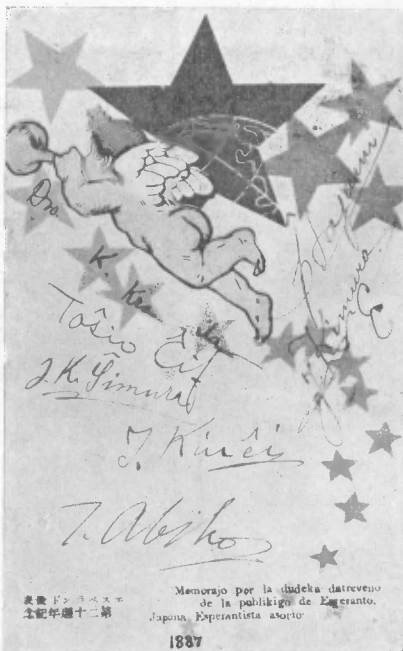 Dro.
K.
Toŝio
J. K. Ŝimura
J. Kiuĉi
T. Abiko
エスペラント發表
第二十週年紀念
Memorajo por la dudeka datreveno
de la publikigo de Esperanto.
Japana Esperantista asocio
1887